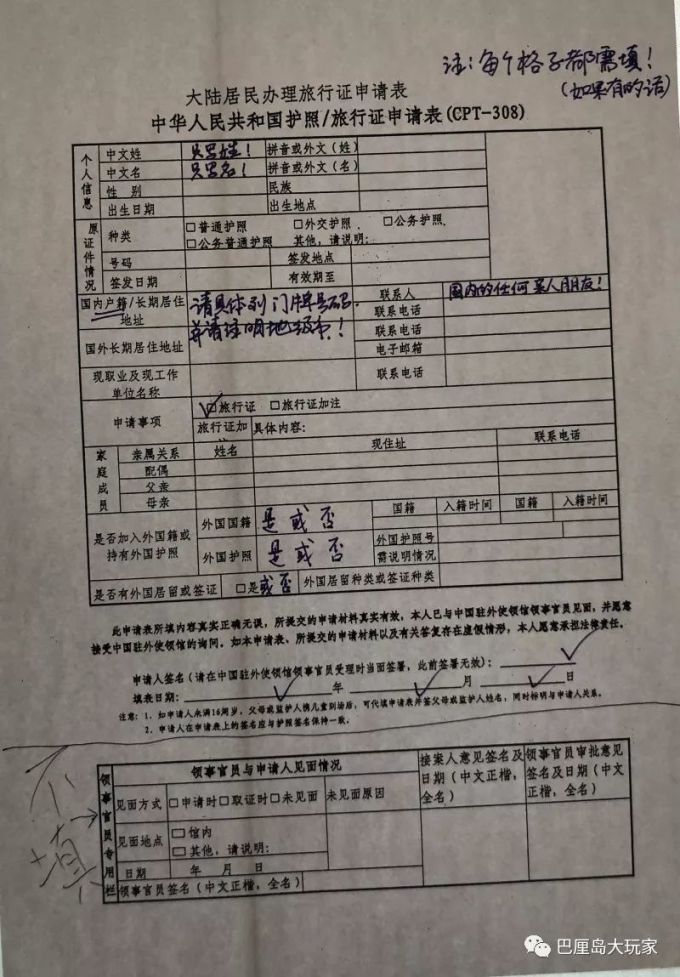 注：每个格子都需填！
(如果有的话)
大陆居民办理旅行证申请表
中华人民共和国护照/旅行证申请表(CPT-308)
个人信息
中文姓 只写姓！ 拼音或外文(姓)
中文名 只写名！ 拼音或外文(名)
性 别 民族
出生日期 出生地点
原证件情况
种类 □普通护照 □外交护照 □公务护照
□公务普通护照 其他，请说明：
号码 签发地点
签发日期 有效期至
国内户籍/长期居住地址 请具体到门牌号码 并请注明地级市！ 联系人 国内的任何某人朋友！
联系电话
国外长期居住地址 联系电话
电子邮箱
现职业及现工作单位名称 联系电话
申请事项 ✓□旅行证 □旅行证加注
旅行证加注 具体内容：
家庭成员
亲属关系 姓名 现住址 联系电话
配偶
父亲
母亲
是否加入外国籍或持有外国护照
外国国籍 是或否 国籍 入籍时间 国籍 入籍时间
外国护照 是或否 外国护照号
需说明情况
是否有外国居留或签证 □是或否 外国居留种类或签证种类
此申请表所填内容真实正确无误，所提交的申请材料真实有效，本人已与中国驻外使领馆领事官员见面，并愿意
接受中国驻外使领馆的询问。如本申请表、所提交的申请材料以及有关答复存在虚假情形，本人愿意承担法律责任。
申请人签名(请在中国驻外使领馆领事官员受理时当面签署，此前签署无效)： ✓
填表日期： ✓ 年 ✓ 月 ✓ 日
注意：1、如申请人未满16周岁，父母或监护人携儿童到场后，可代填申请表并签父母或监护人姓名，同时标明与申请人关系。
2、申请人在申请表上的签名应与护照签名保持一致。
不填
领事官员专用栏
领事官员与申请人见面情况 接案人意见签名及日期(中文正楷，全名) 领事官员审批意见签名及日期(中文正楷，全名)
见面方式 □申请时□取证时□未见面 未见面原因
见面地点 □馆内
□其他，请说明：
日期 年 月 日
领事官员签名(中文正楷，全名)
巴厘岛大玩家